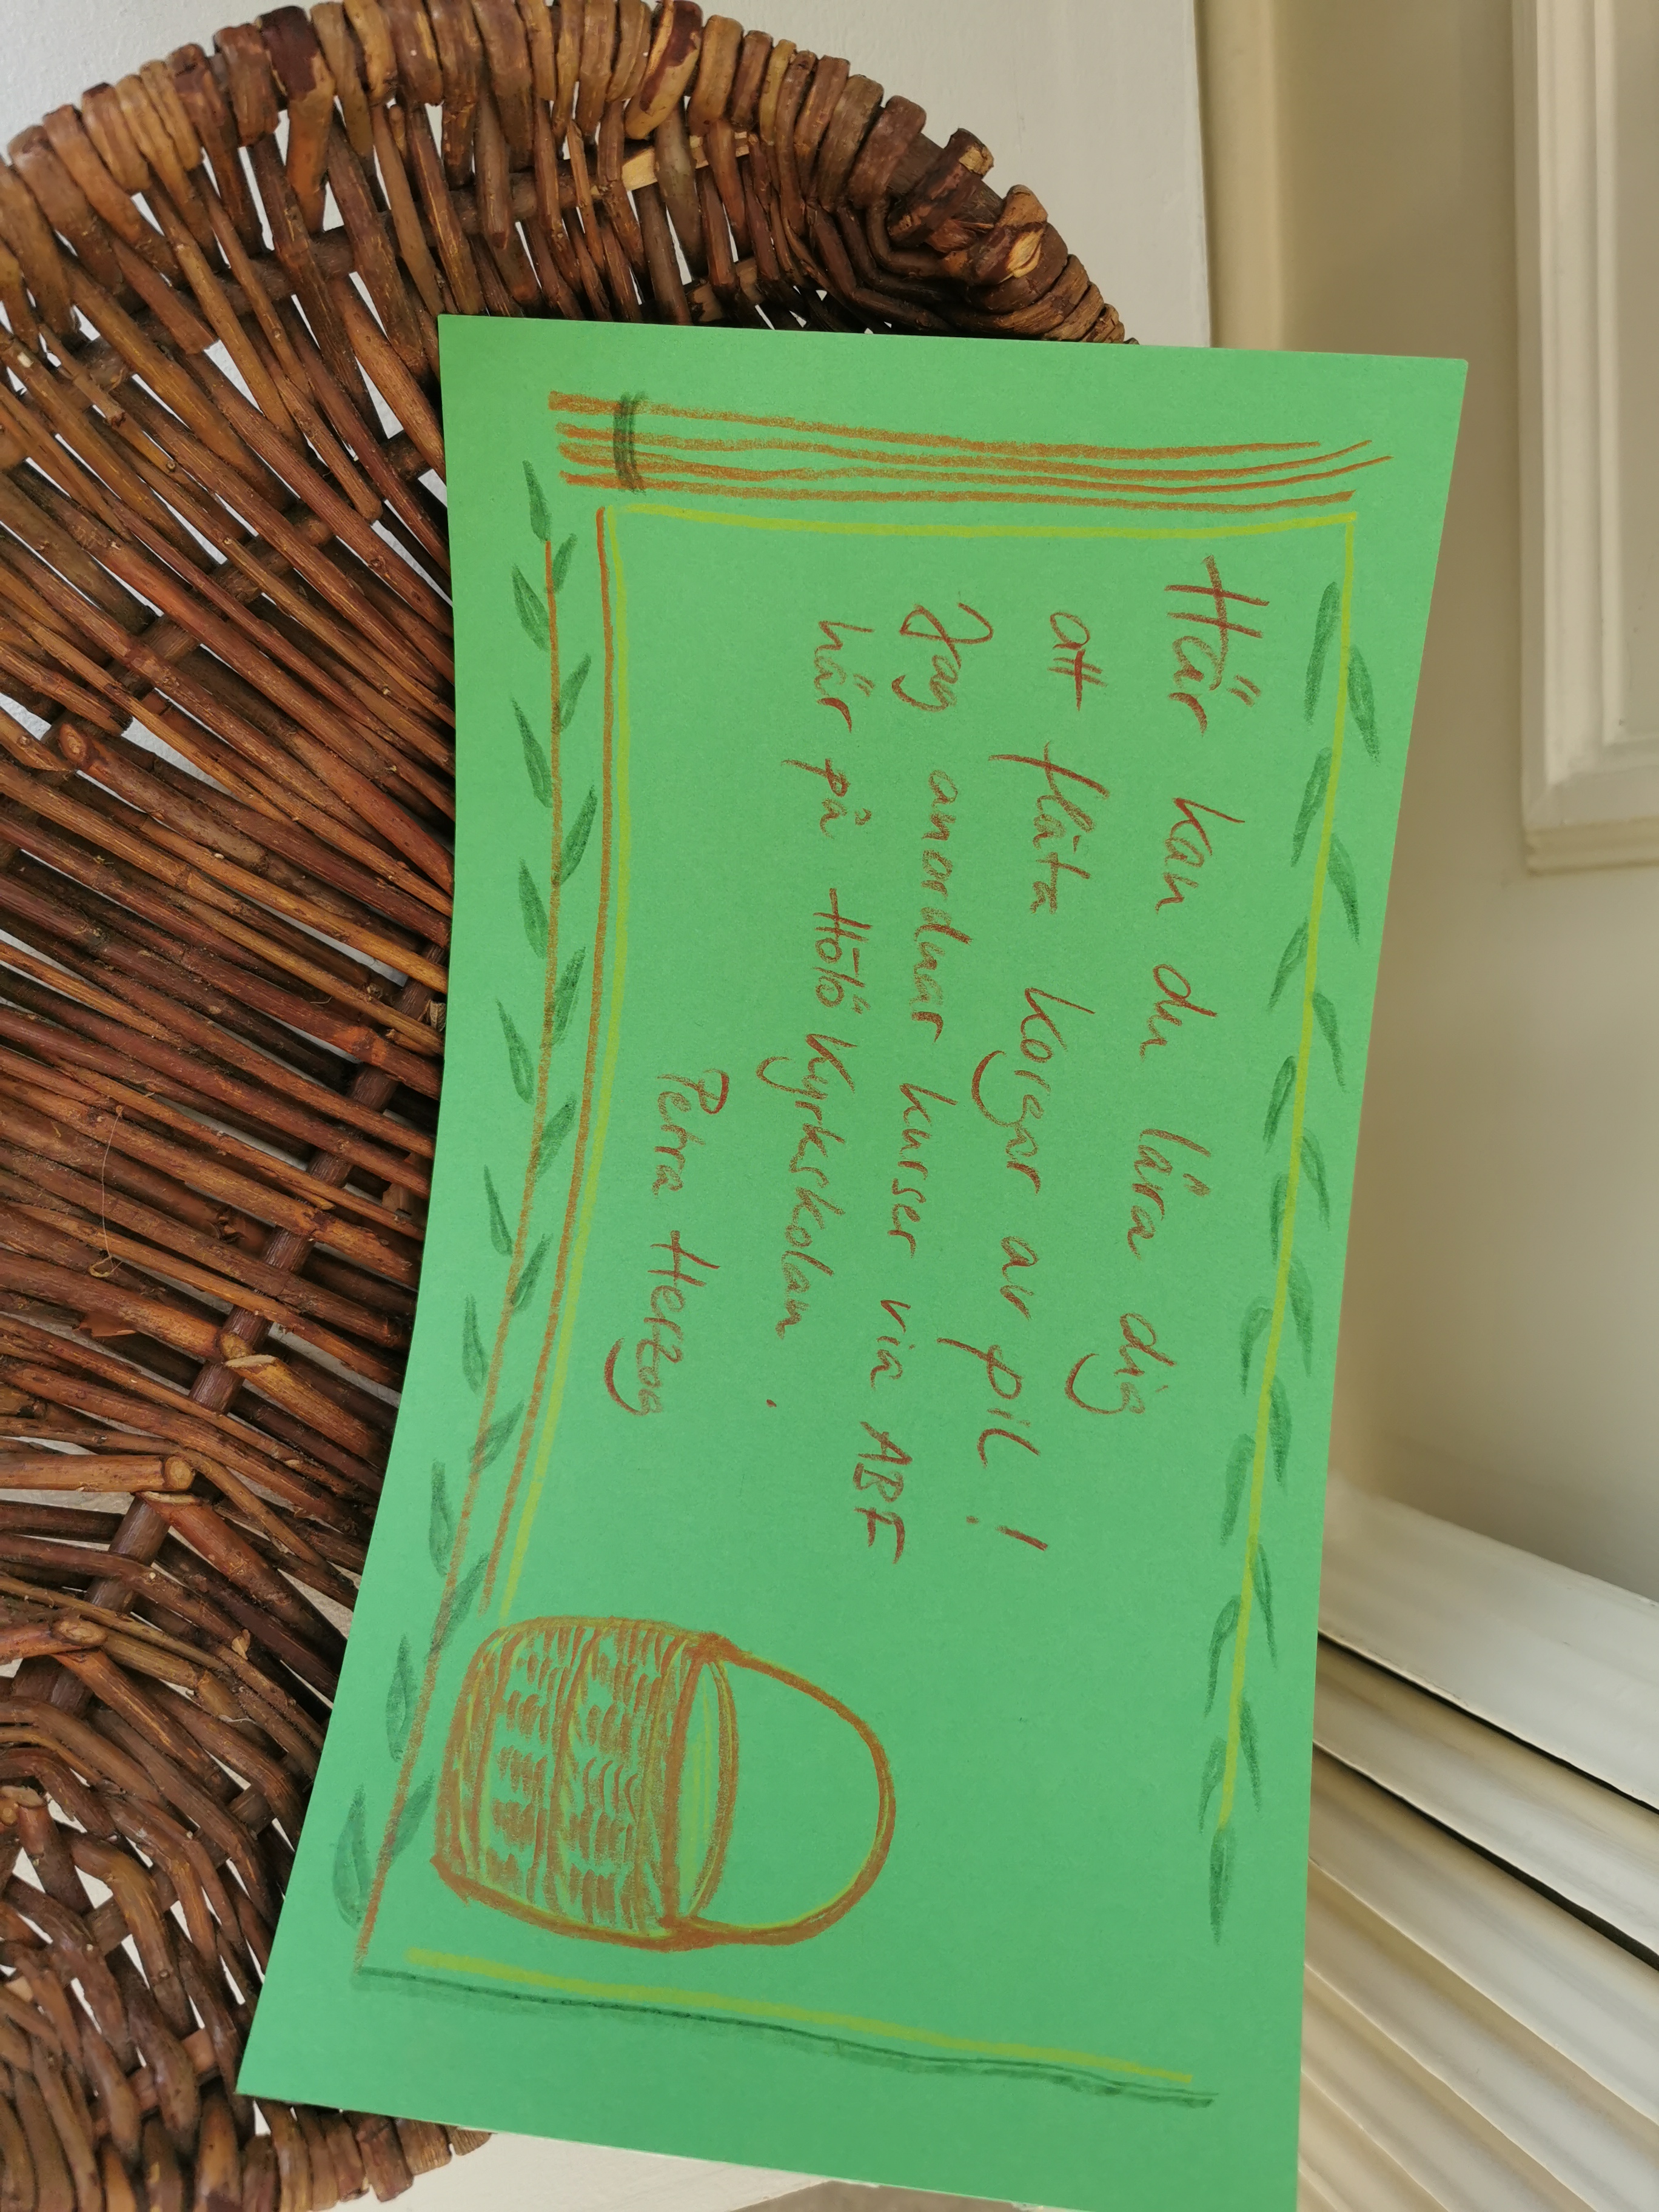 Här kan du lära dig
att fläta korgar av pil!
Jag anordnar kurser via ABF
här på Hölö Kyrkskolan.
Petra Herzog